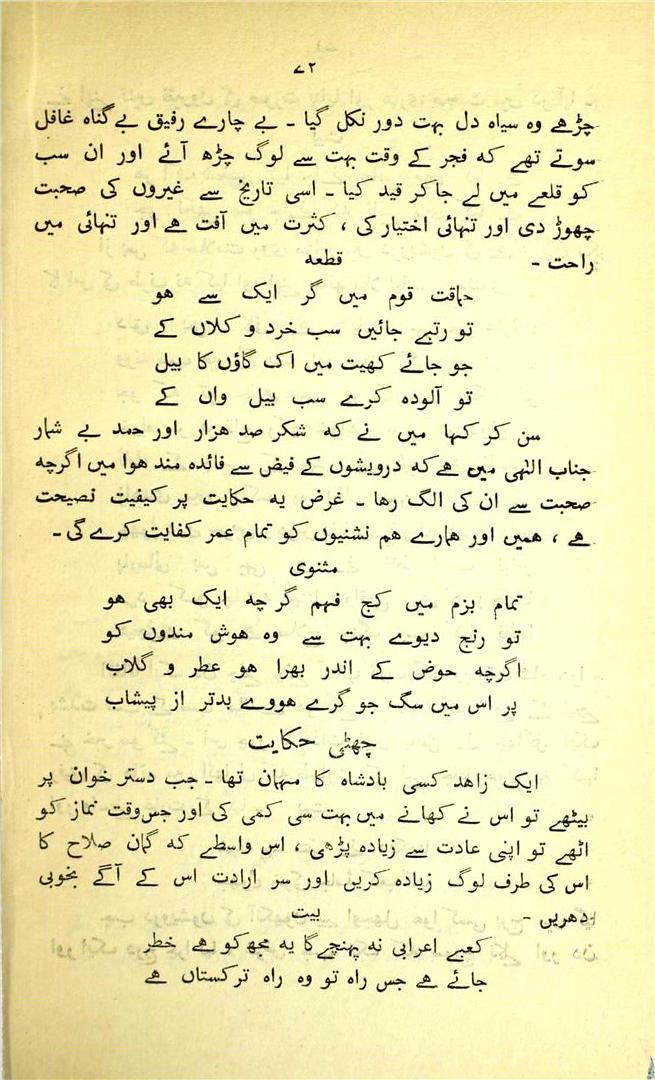 ۷۲
چڑھے وہ سیاہ دل بہت دور نکل گیا ۔ بے چارے رفیق بے گناہ غافل
سوتے تھے کہ فجر کے وقت بہت سے لوگ چڑھ آئے اور ان سب
کو قلعے میں لے جا کر قید کیا ۔ اسی تاریخ سے غیروں کی صحبت
چھوڑ دی اور تنہائی اختیار کی ، کثرت میں آفت ہے اور تنہائی میں
راحت ۔
قطعہ
حماقت قوم میں گر ایک سے ھو
تو رتبے جائیں سب خرد و کلاں کے
جو جائے کھیت میں اک گاؤں کا بیل
تو آلودہ کرے سب بیل واں کے
سن کر کہا میں نے کہ شکر صد ھزار اور حمد بے شمار
جناب الٰہی میں ھے کہ درویشوں کے فیض سے فائدہ مند ھوا میں اگرچہ
صحبت سے ان کی الگ رھا ۔ غرض یہ حکایت پر کیفیت نصیحت
ہے ، ھمیں اور ھمارے ھم نشنیوں کو تمام عمر کفایت کرے گی ۔
مثنوی
تمام بزم میں کج فہم گر چہ ایک بھی ھو
تو رنج دیوے بہت سے وہ ھوش مندوں کو
اگرچہ حوض کے اندر بھرا ھو عطر و گلاب
پر اس میں سگ جو گرے ھووے بدتر از پیشاب
چھٹی حکایت
ایک زاھد کسی بادشاہ کا مہمان تھا ۔ جب دستر خوان پر
بیٹھے تو اس نے کھانے میں بہت سی کمی کی اور جس وقت نماز کو
اٹھے تو اپنی عادت سے زیادہ پڑھی ، اس واسطے کہ گمان صلاح کا
اس کی طرف لوگ زیادہ کریں اور سر ارادت اس کے آگے بخوبی
دھریں ۔
بیت
کعبے اعرابی نہ پہنچے گا یہ مجھ کو ھے خطر
جائے ھے جس راہ تو وہ راہ ترکستاں ھے